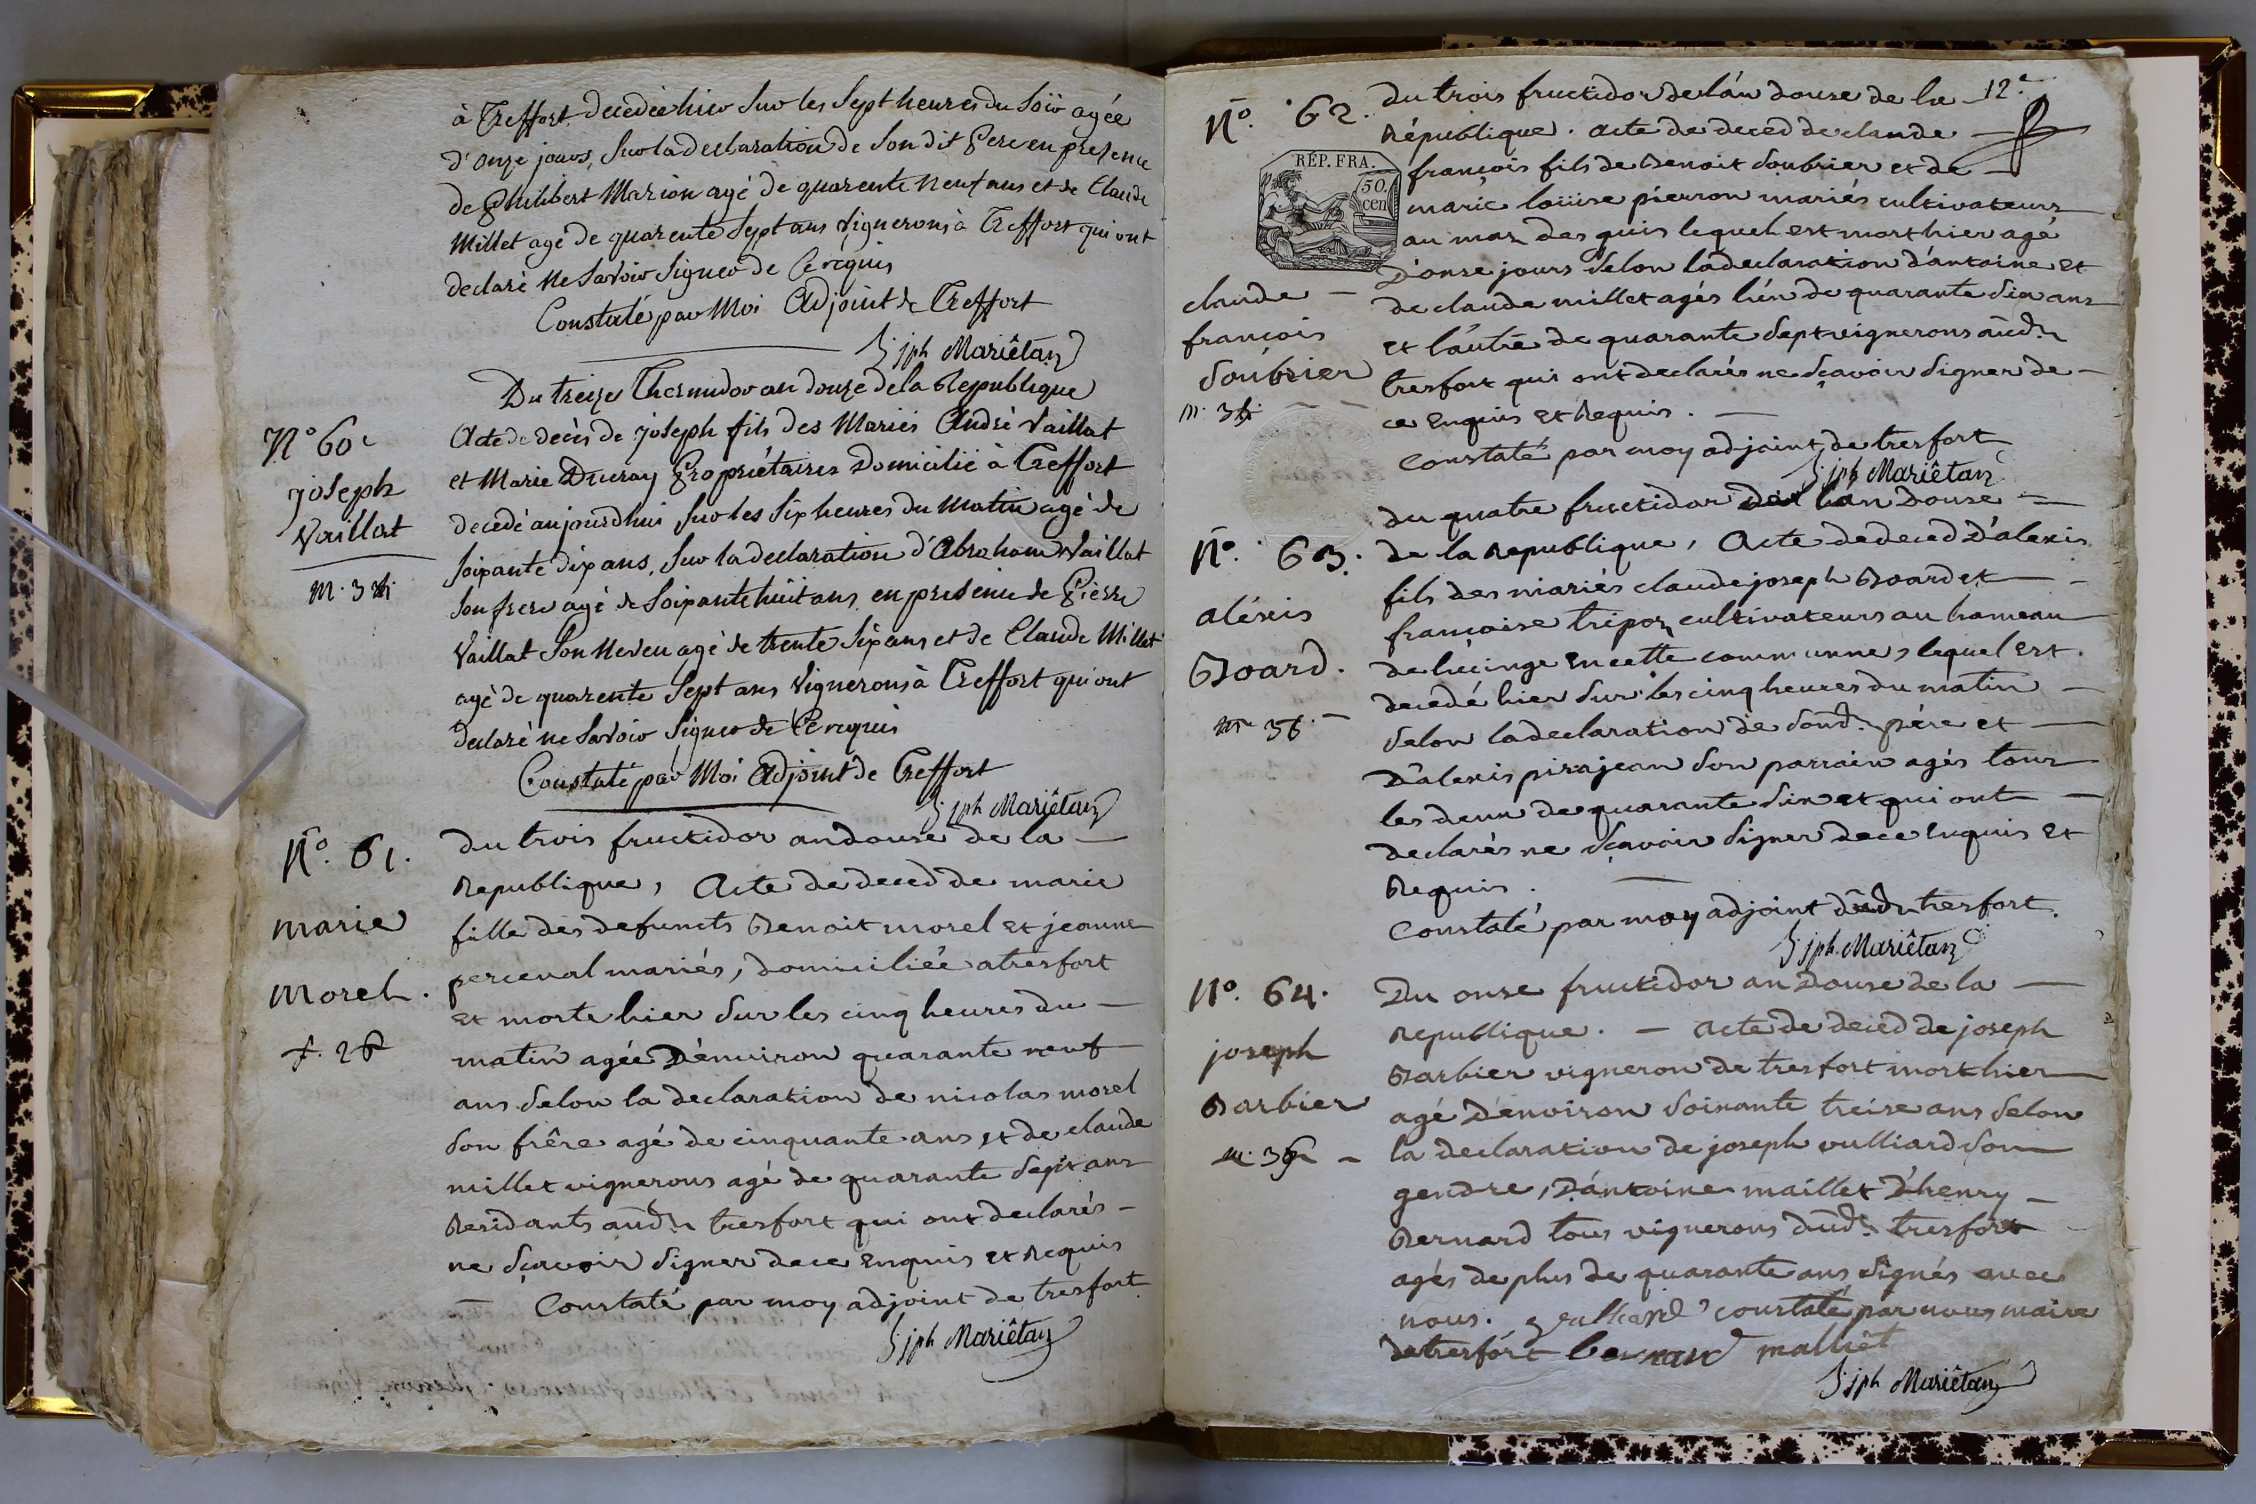 à Treffort decedée hier Sur les Sept heures du Soir agée
d'onze jours, Sur la declaration de Son dit Pere en presence
de Philibert Marion agé de quarente neuf ans et de Claude
Millet agé de quarente Sept ans Vignerons à Treffort qui ont
declaré Ne Savoir Signer de Ce requis
Constaté par Moi Adjoint de Treffort
Jph Mariêtan
Du treize Thermidor an douze de la Republique
N° 60
Acte de decès de joseph fils des Mariés André Vaillat
et Marie Ducray Propriétaires Domicilié à Treffort
joseph
Vaillat
decedé aujourdhui Sur les Six heures du Matin agé de
Soixante dix ans, Sur la declaration d'Abraham Vaillat
m. 34
Son frere agé de Soixante huit ans en presence de Pierre
Vaillat Son Neveu agé de trente Six ans et de Claude Millet
agé de quarente Sept ans Vignerons à Treffort qui ont
declaré ne Savoir Signer de Ce requis
Constaté par Moi Adjoint de Treffort
Jph Mariêtan
N°. 61.
du trois fructidor an douse de la
Republique, Acte de deced de marie
marie
fille des defuncts Benoit morel et jeanne
perceval mariés, domiciliée a tresfort
morel.
et morte hier Sur les cinq heures du
f. 26
matin agée D'environ quarante neuf
ans Selon la declaration de nicolas morel
Son frêre agé de cinquante ans et de claude
millet vignerons agé de quarante Sept ans
Residants aud. tresfort qui ont declarés
ne Sçavoir Signer de ce Enquis et Requis
Constaté par moy adjoint de tresfort
Jph Mariêtan
12e
N°. 62.
du trois fructidor de l'an douse de la
République. acte de deced de claude
RÉP. FRA.
50.
cen
françois fils de Benoit Soubrier et de
marie loüise pierron mariés cultivateurs
au mas des guis lequel est mort hier agé
D'onse jours Selon la declaration d'antoine et
claude
françois
Soubrier
de claude millet agés l'un de quarante Six ans
et l'autre de quarante Sept vignerons aud.
tresfort qui ont declarés ne Sçavoir Signer de
m. 35
ce Enquis et Requis.
Constaté par moy adjoint de tresfort
Jph Mariêtan
du quatre fructidor de l'an Douse
N°. 63.
de la Republique, Acte de deced D'alexis
fils des mariés claude joseph Board et
alexis
françoise tripoz cultivateurs au hameau
Board.
de lucinge En cette communne, lequel est
decedé hier Sur les cinq heures du matin
m. 36
Selon la declaration de Sond. pére et
D'alexis pirajean Son parrain agés tous
les deux de quarante Six et qui ont
declarés ne Sçavoir Signer de ce Enquis et
Requis.
Constaté par moy adjoint dud. tresfort.
Jph Mariêtan
N°. 64.
Du onse fructidor an Douse de la
Republique. acte de deced de joseph
joseph
Barbier
Barbier vigneron de tresfort mort hier
agé D'environ Soixante treise ans Selon
la declaration de joseph vulliard Son
gendre, D'antoine maillet D'henry
Bernard tous vignerons dud. tresfort
agés de plus de quarante ans Signés avec
nous. constaté par nous maire
de tresfórt bernard malliet
Jph Mariêtan